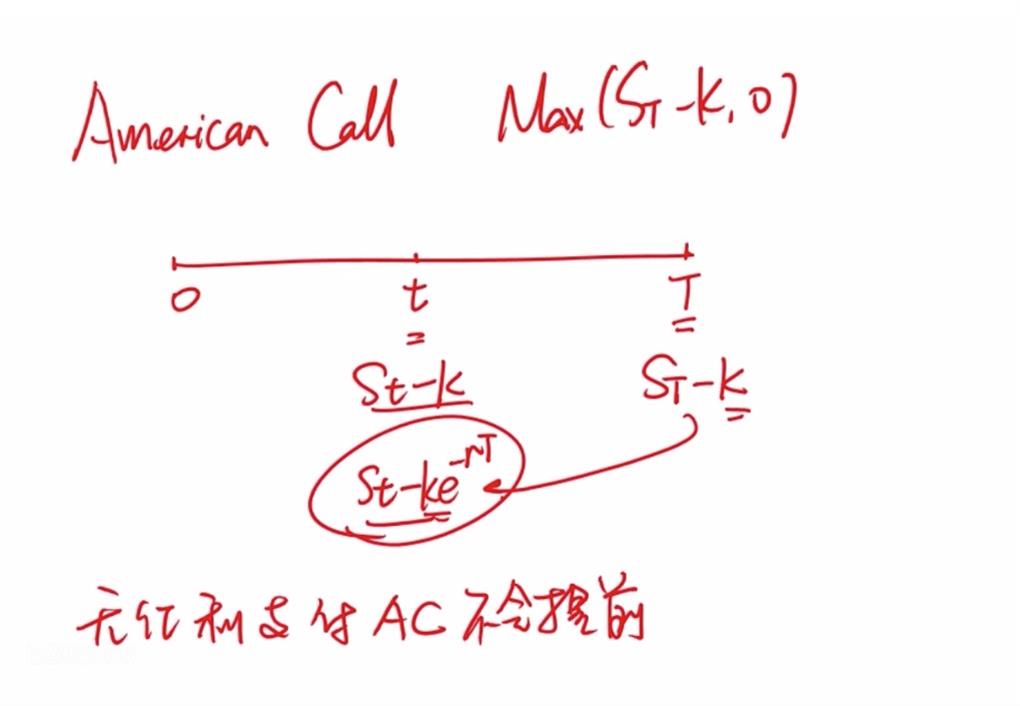 American Call Max(S_T-K, 0)
0 t T
St-k S_T-k
St-ke^-rT
无红利支付AC不会提前